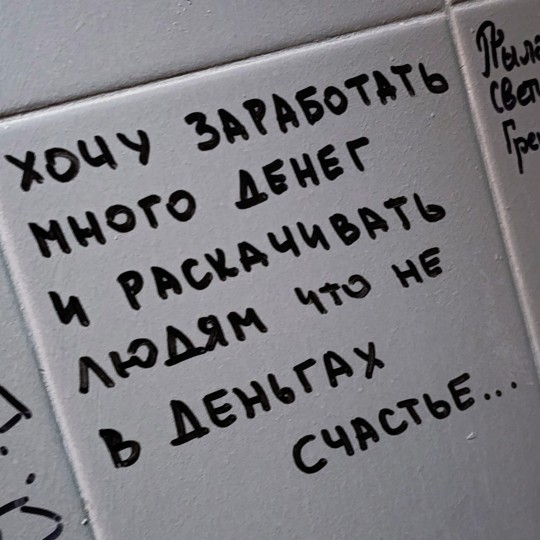 ХОЧУ ЗАРАБОТАТЬ
МНОГО ДЕНЕГ
И РАСКАЧИВАТЬ
ЛЮДЯМ ЧТО НЕ
В ДЕНЬГАХ
СЧАСТЬЕ...